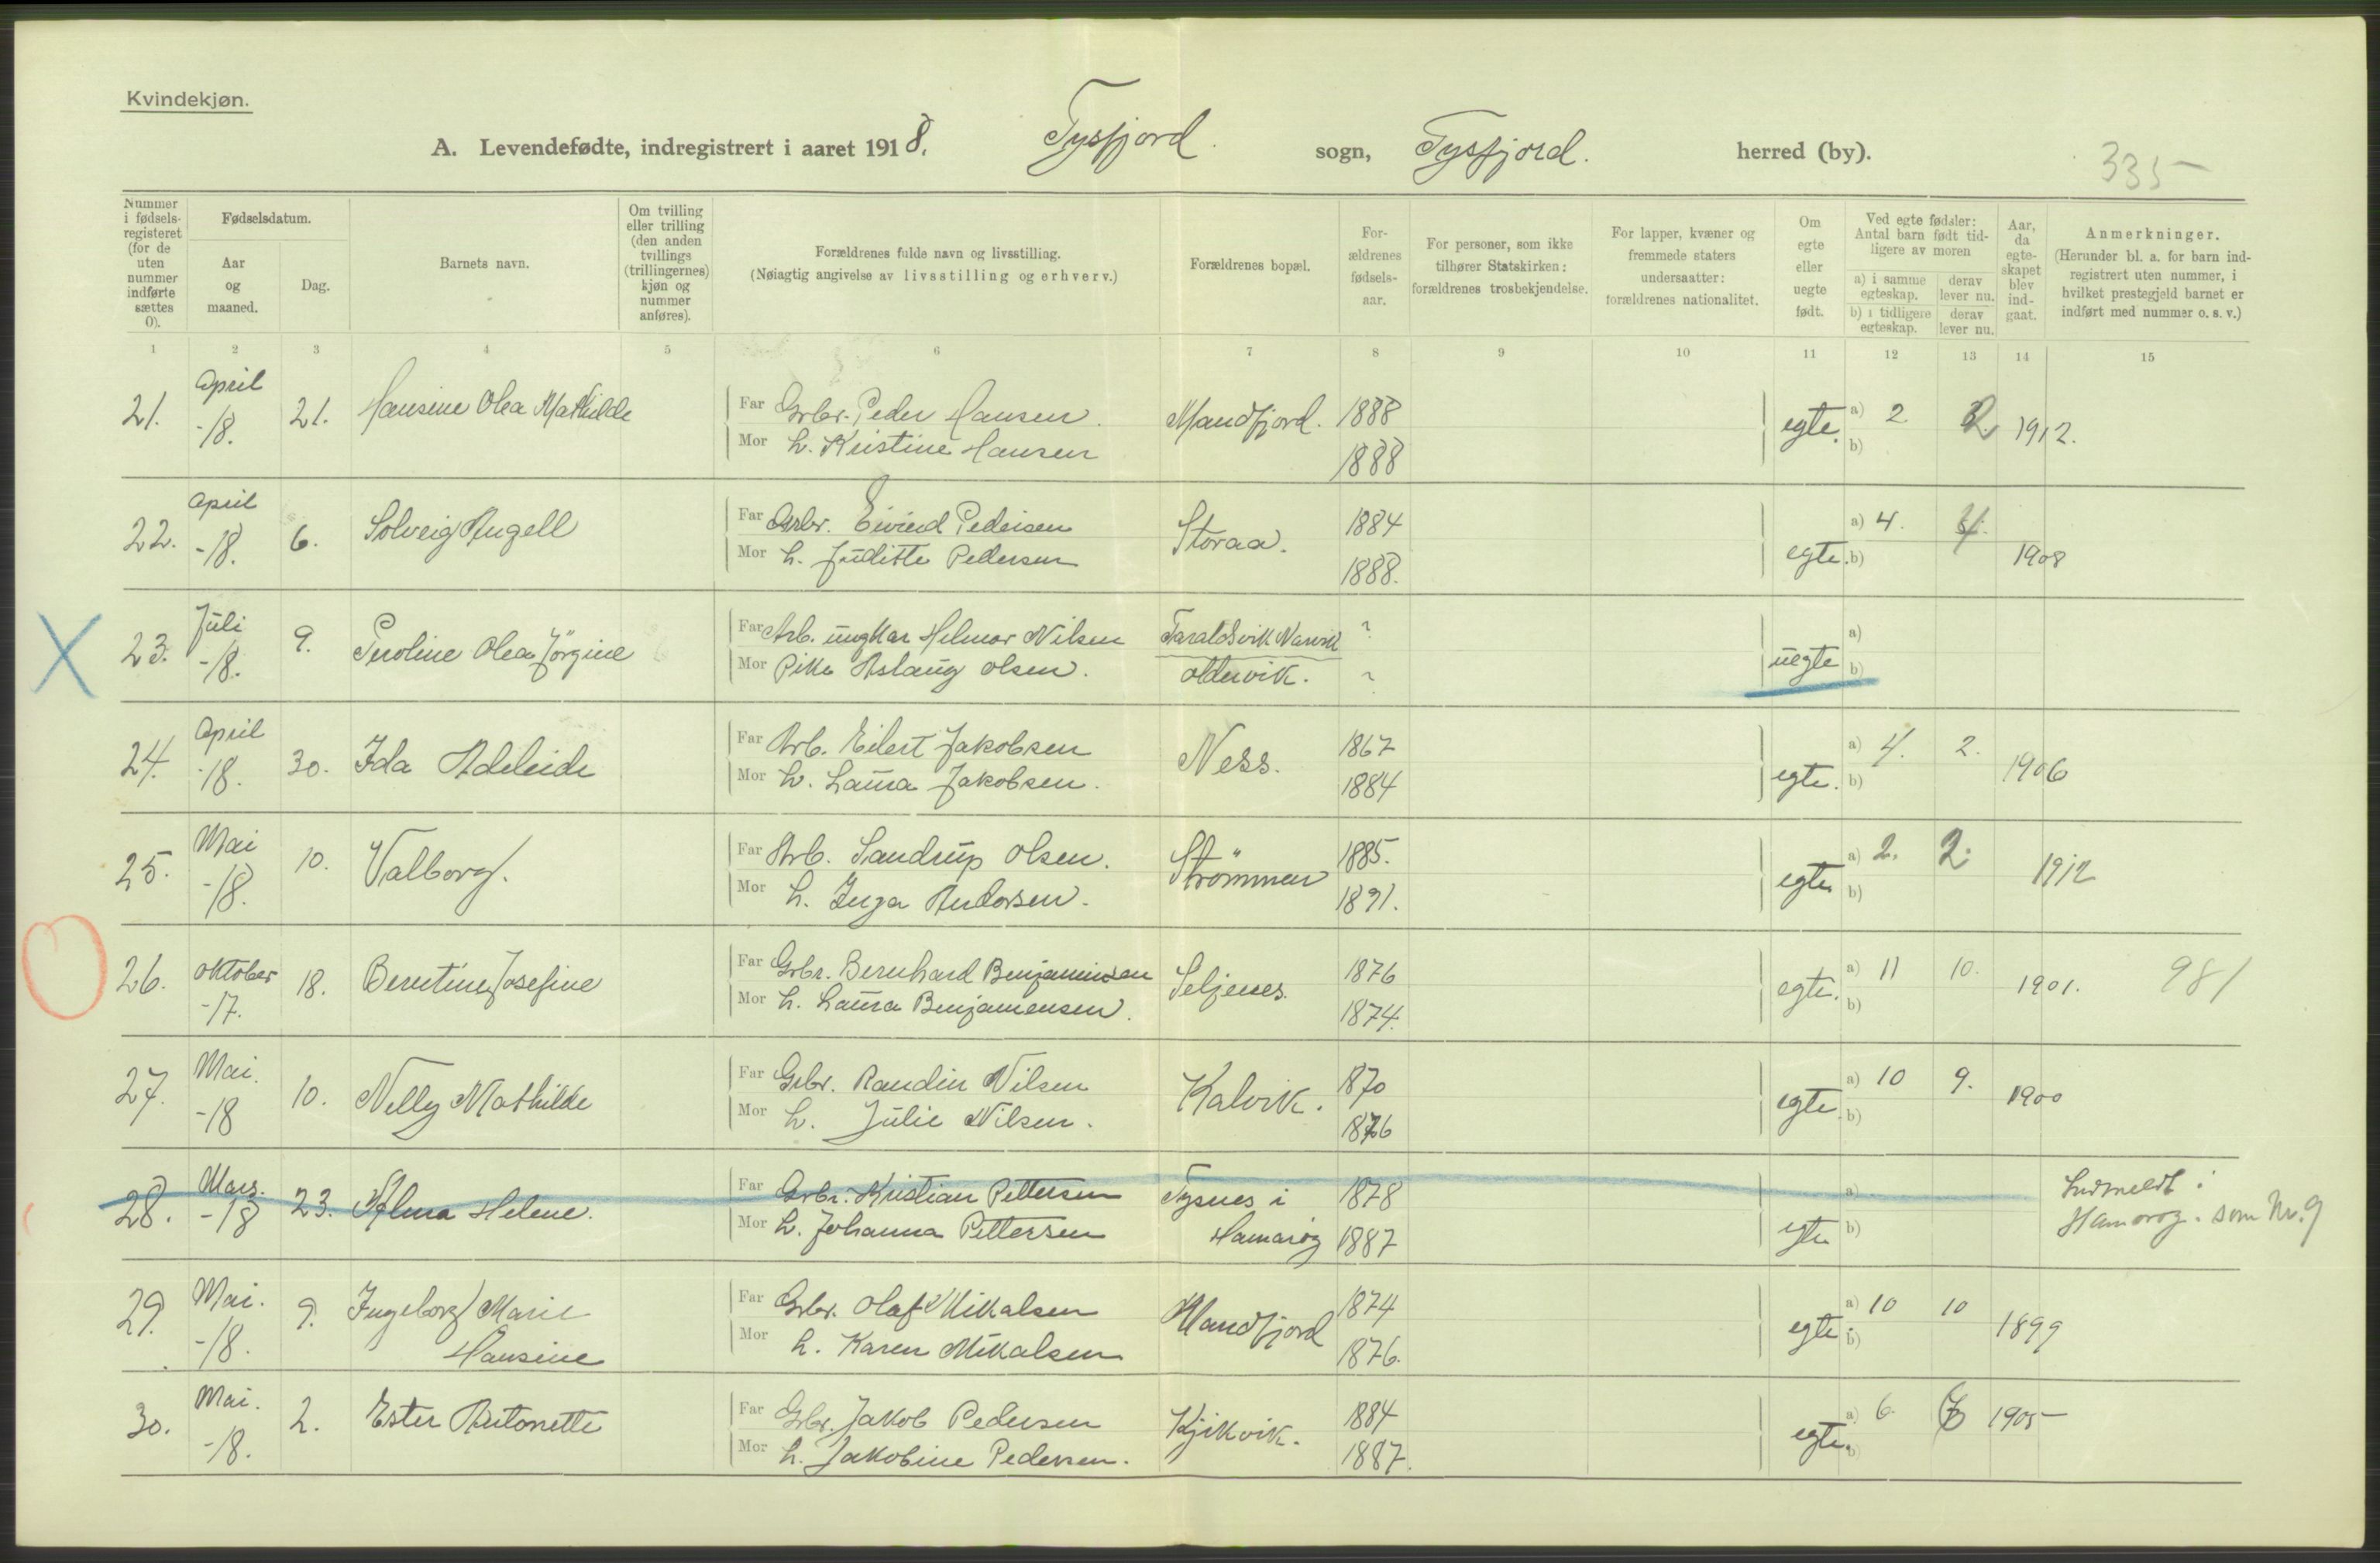 Kvindekjøn.
A. Levendefødte, indregistrert i aaret 1918. Tysfjord sogn, Tysfjord. herred (by).
335
Nummer i fødselsregisteret (for de uten nummer indførte sættes 0).
Fødselsdatum.
Aar og maaned.
Dag.
Barnets navn.
Om tvilling eller trilling (den anden tvillings (trillingernes) kjøn og nummer anføres).
Forældrenes fulde navn og livsstilling.
(Nøiagtig angivelse av livsstilling og erhverv.)
Forældrenes bopæl.
Forældrenes fødselsaar.
For personer, som ikke tilhører Statskirken: forældrenes trosbekjendelse.
For lapper, kvæner og fremmede staters undersaatter: forældrenes nationalitet.
Om egte eller uegte født.
Ved egte fødsler: Antal barn født tidligere av moren
a) i samme egteskap. derav lever nu.
b) i tidligere egteskap. derav lever nu.
Aar, da egteskapet blev indgaat.
Anmerkninger.
(Herunder bl. a. for barn indregistrert uten nummer, i hvilket prestegjeld barnet er indført med nummer o. s. v.)
1 2 3 4 5 6 7 8 9 10 11 12 13 14 15
21. April -18. 21. Hansine Olea Mathilde Far Grbr. Peder Hansen. Mandfjord. 1888 egte. a) 2 2. 1912.
Mor h. Kristine Hansen 1888 b)
22. April -18. 6. Solveig Angell Far Grbr. Eivind Pedersen Storaa. 1884 egte. a) 4. 4. 1908
Mor h. Juditte Pedersen 1888. b)
23. Juli -18. 9. Peroline Olea Jörgine Far Arb. ungkar Helmor Nilsen Taraldsvik Narvik ? uegte a)
Mor Pike Aslaug Olsen. Oldervik. ? b)
24. April -18. 30. Ida Adeleide Far Arb. Eilert Jakobsen Ness. 1867 egte. a) 4. 2. 1906
Mor h. Laura Jakobsen. 1884 b)
25. Mai -18. 10. Valborg. Far Arb. Sandrup Olsen. Strömmen 1885. egte a) 2. 2. 1912
Mor h. Inga Andorsen. 1891. b)
26. Oktober -17. 18. Berntine Josefine Far Grbr. Bernhard Benjaminsen Seljenes. 1876 egte. a) 11 10. 1901. 981
Mor h. Laura Benjamensen. 1874. b)
27. Mai. -18 10. Nelly Mathilde Far Grbr. Randin Nilsen Kalvik. 1870 egte a) 10 9. 1900
Mor h. Julie Nilsen. 1876 b)
28. Mars. -18 23. Alma Helene. Far Grbr. Kristian Pettersen Tysnes i 1878 egte a) Indmeldt i
Mor h. Johanna Pettersen Hamarøy 1887 b) Hamarøy. som Nr. 9
29. Mai. -18. 9. Ingeborg Marie Far Grbr. Olaf Mikalsen Mandfjord 1874 egte. a) 10 10 1899
Hansine Mor h. Karen Mikalsen 1876. b)
30. Mai. -18. 2. Ester Antonette Far Grbr. Jakob Pedersen Kjikvik. 1884 egte. a) 6. 1905
Mor h. Jakobine Pedersen. 1887. b)